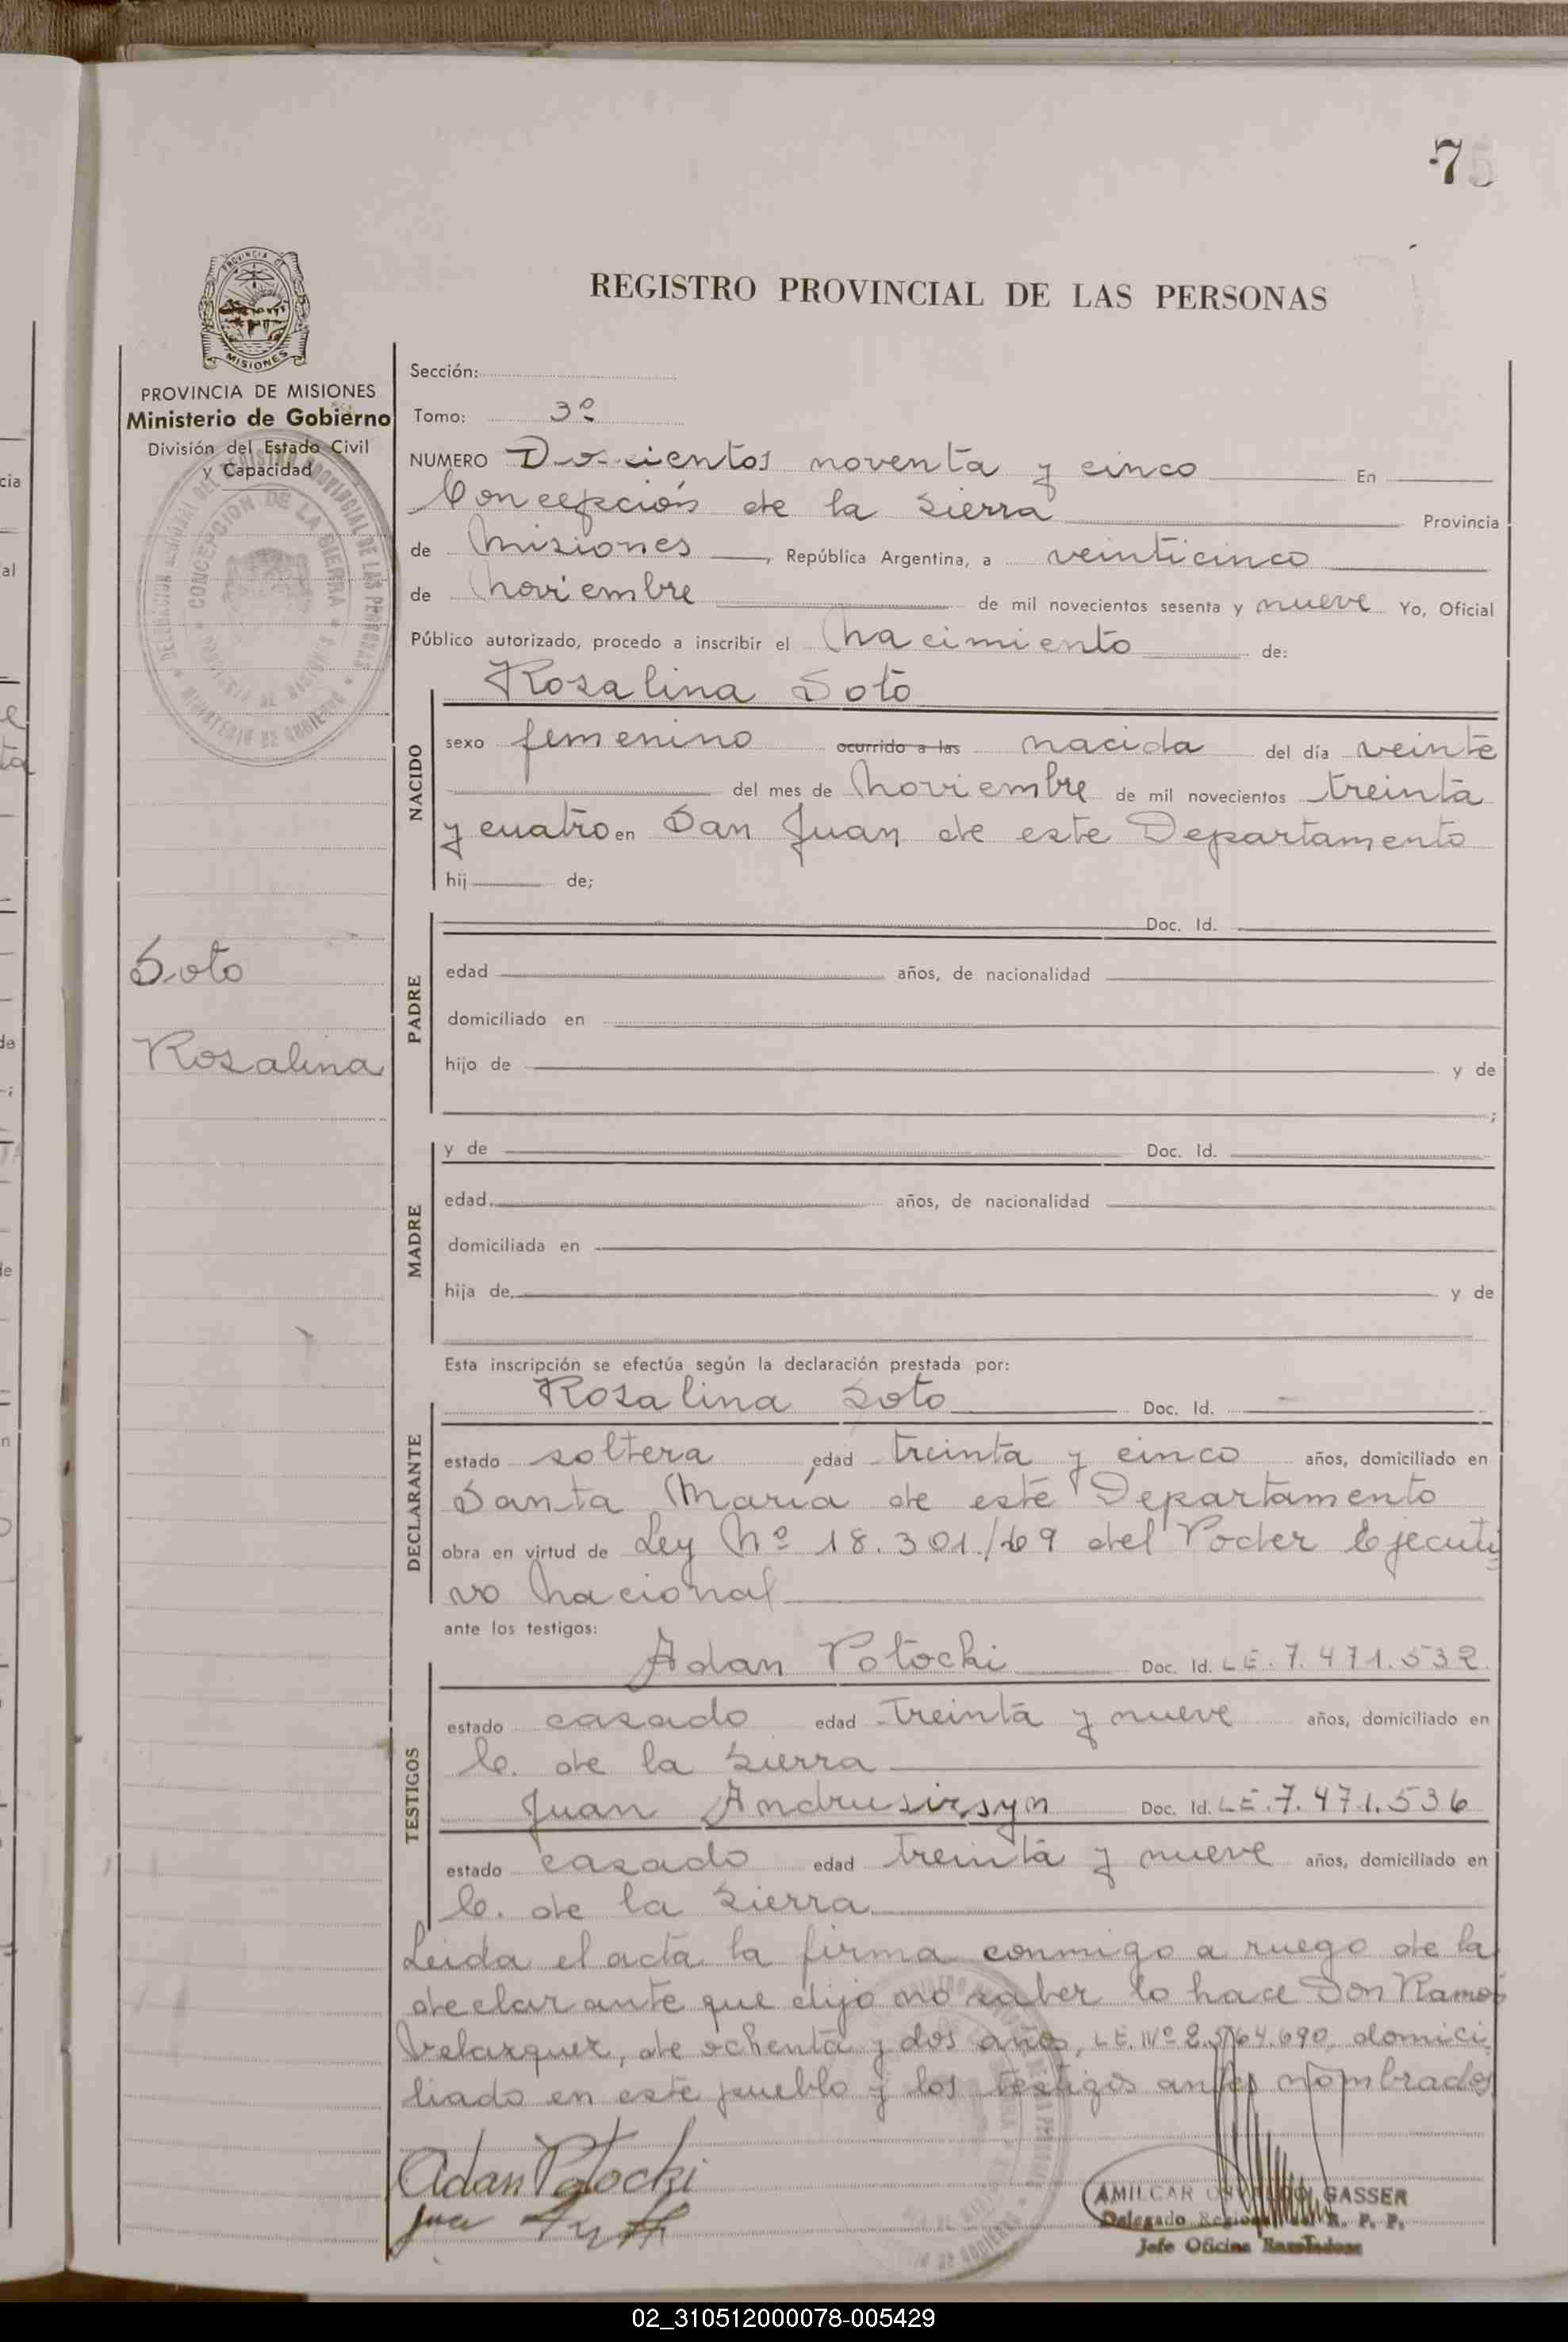 75
PROVINCIA DE
MISIONES
REGISTRO PROVINCIAL DE LAS PERSONAS
PROVINCIA DE MISIONES
Ministerio de Gobierno
División del Estado Civil
y Capacidad
CONCEPCION DE LA SIERRA
Soto
Rosalina
Sección:
Tomo: 3º
NUMERO Doscientos noventa y cinco En
Concepción de la Sierra Provincia
de Misiones, República Argentina, a veinticinco
de Noviembre de mil novecientos sesenta y nueve Yo, Oficial
Público autorizado, procedo a inscribir el Nacimiento de:
Rosalina Soto
NACIDO
sexo femenino ocurrido a las nacida del día veinte
del mes de Noviembre de mil novecientos treinta
y cuatro en San Juan de este Departamento
hij de;
PADRE
Doc. Id.
edad años, de nacionalidad
domiciliado en
hijo de y de
;
MADRE
y de Doc. Id.
edad años, de nacionalidad
domiciliada en
hija de y de
Esta inscripción se efectúa según la declaración prestada por:
DECLARANTE
Rosalina Soto Doc. Id.
estado soltera, edad treinta y cinco años, domiciliado en
Santa María de este Departamento
obra en virtud de Ley Nº 18.301/69 del Poder Ejecuti
vo Nacional
ante los testigos:
TESTIGOS
Adan Potocki Doc. Id. L.E. 7.471.532
estado casado edad treinta y nueve años, domiciliado en
C. de la Sierra
Juan Andrusirsyn Doc. Id. L.E. 7.471.536
estado casado edad treinta y nueve años, domiciliado en
C. de la Sierra
Leida el acta la firma conmigo a ruego de la
declarante que dijo no saber lo hace Don Ramos
Velazquez, de ochenta y dos años, L.E. Nº domici
liado en este pueblo y los testigos antes nombrados
Adan Potocki
Juan
AMILCAR GASSER
Delegado Regional R. P. P.
Jefe Oficina
02_310512000078-005429